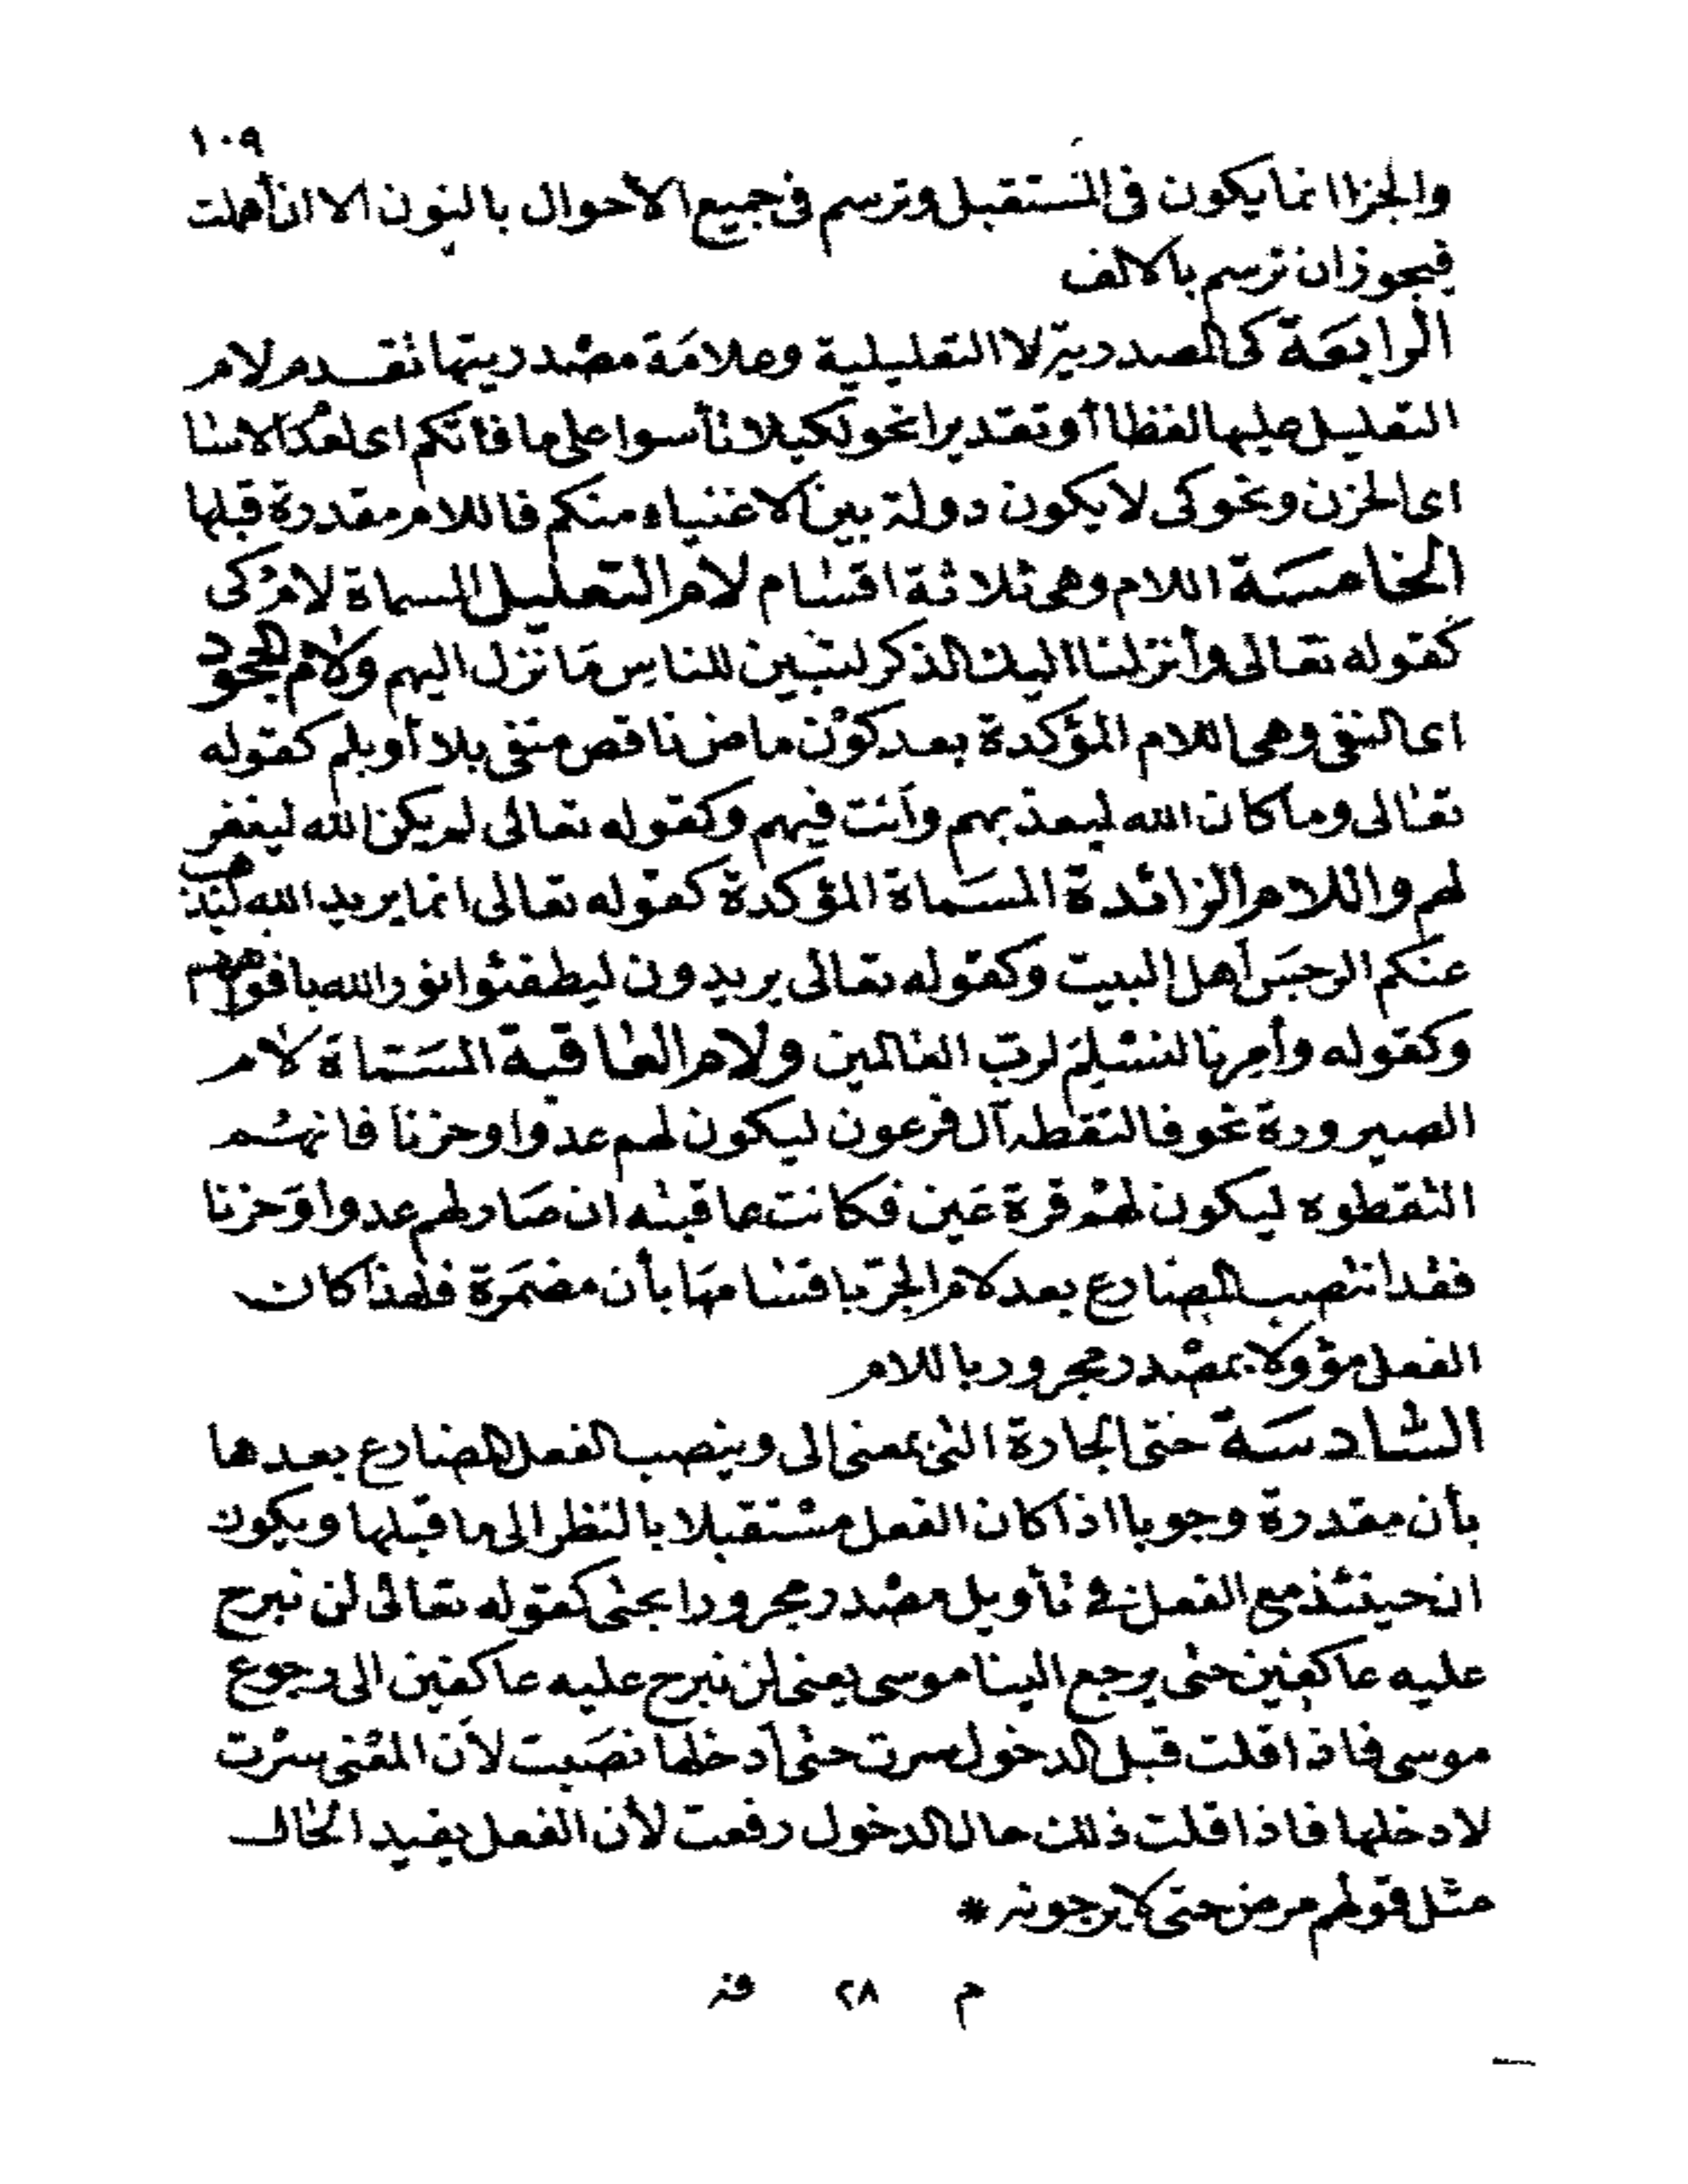 ١٠٩
والجزا انما يكون فى المستقبل وترسم فى جميع الأحوال بالنون الا ان أهملت
فيجوز ان ترسم بالالف
الرابعة كى المصدرية لا التعليلية وعلامَة مصْدريتها تقدم لام
التعليل عليها لفظا أو تقديرا نحو لكيلا تأسوا على ما فاتكم اى لعدَم الاسا
اى الحزن ونحو كى لا يكون دولة بين الاغنياء منكم فاللام مقدرة قبلها
الخامسَة اللام وهى ثلاثة اقسام لام التعليل المسماة لام كى
كقوله تعالى وأنزلنا اليك الذكر لتبين للناس مَا نزل اليهم ولام الجحود
اى النفى وهى اللام المؤكدة بعد كوْن ماض ناقص منفى بلا أو بلم كقوله
تعالى وما كان الله ليعذبهم وأنت فيهم وكقوله تعالى لم يكن الله ليغفر
لهم واللام الزائدة المسَماة المؤكدة كقوله تعالى انما يريد الله ليذهب
عنكم الرجسَ أهل البيت وكقوله تعالى يريدون ليطفئوا نور الله بافواههم
وكقوله وأمِرنا لنسْلِمَ لربِ العالمين ولام العاقبة المسَماة لام
الصيرورة نحو فالتقطه آل فرعون ليكون لهم عدوا وحزنا فانهم
التقطوه ليكون لهم قرة عَين فكانت عاقبته ان صَار لهم عدوا وَحزنا
فقد انتصب المضارع بعد لام الجرّ باقسامهَا بأن مضمَرة فلهذا كان
الفعل مؤولا بمصْدر مجرور باللام
السادسَة حتى الجارة التى بمعنى الى وينصب الفعل المضارع بعدها
بأن مقدرة وجوبا اذا كان الفعل مسْتقبلا بالنظر الى ما قبلها ويكون
ان حينئذ مع الفعل فى تأويل مصْدر مجرورا بحتى كقوله تعالى لن نبرح
عليه عاكفِين حتى يرجع الينا موسى يعنى لن نبرح عليه عاكفين الى رجوع
موسى فاذا قلت قبل الدخول سرت حتى أدخلها نصَبت لأن المعْنى سرْت
لادخلها فاذا قلت ذلك حال الدخول رفعت لأن الفعل يفيد الحال
مثل قولهم مرض حتى لا يرجونه *
م ٢٨ فز